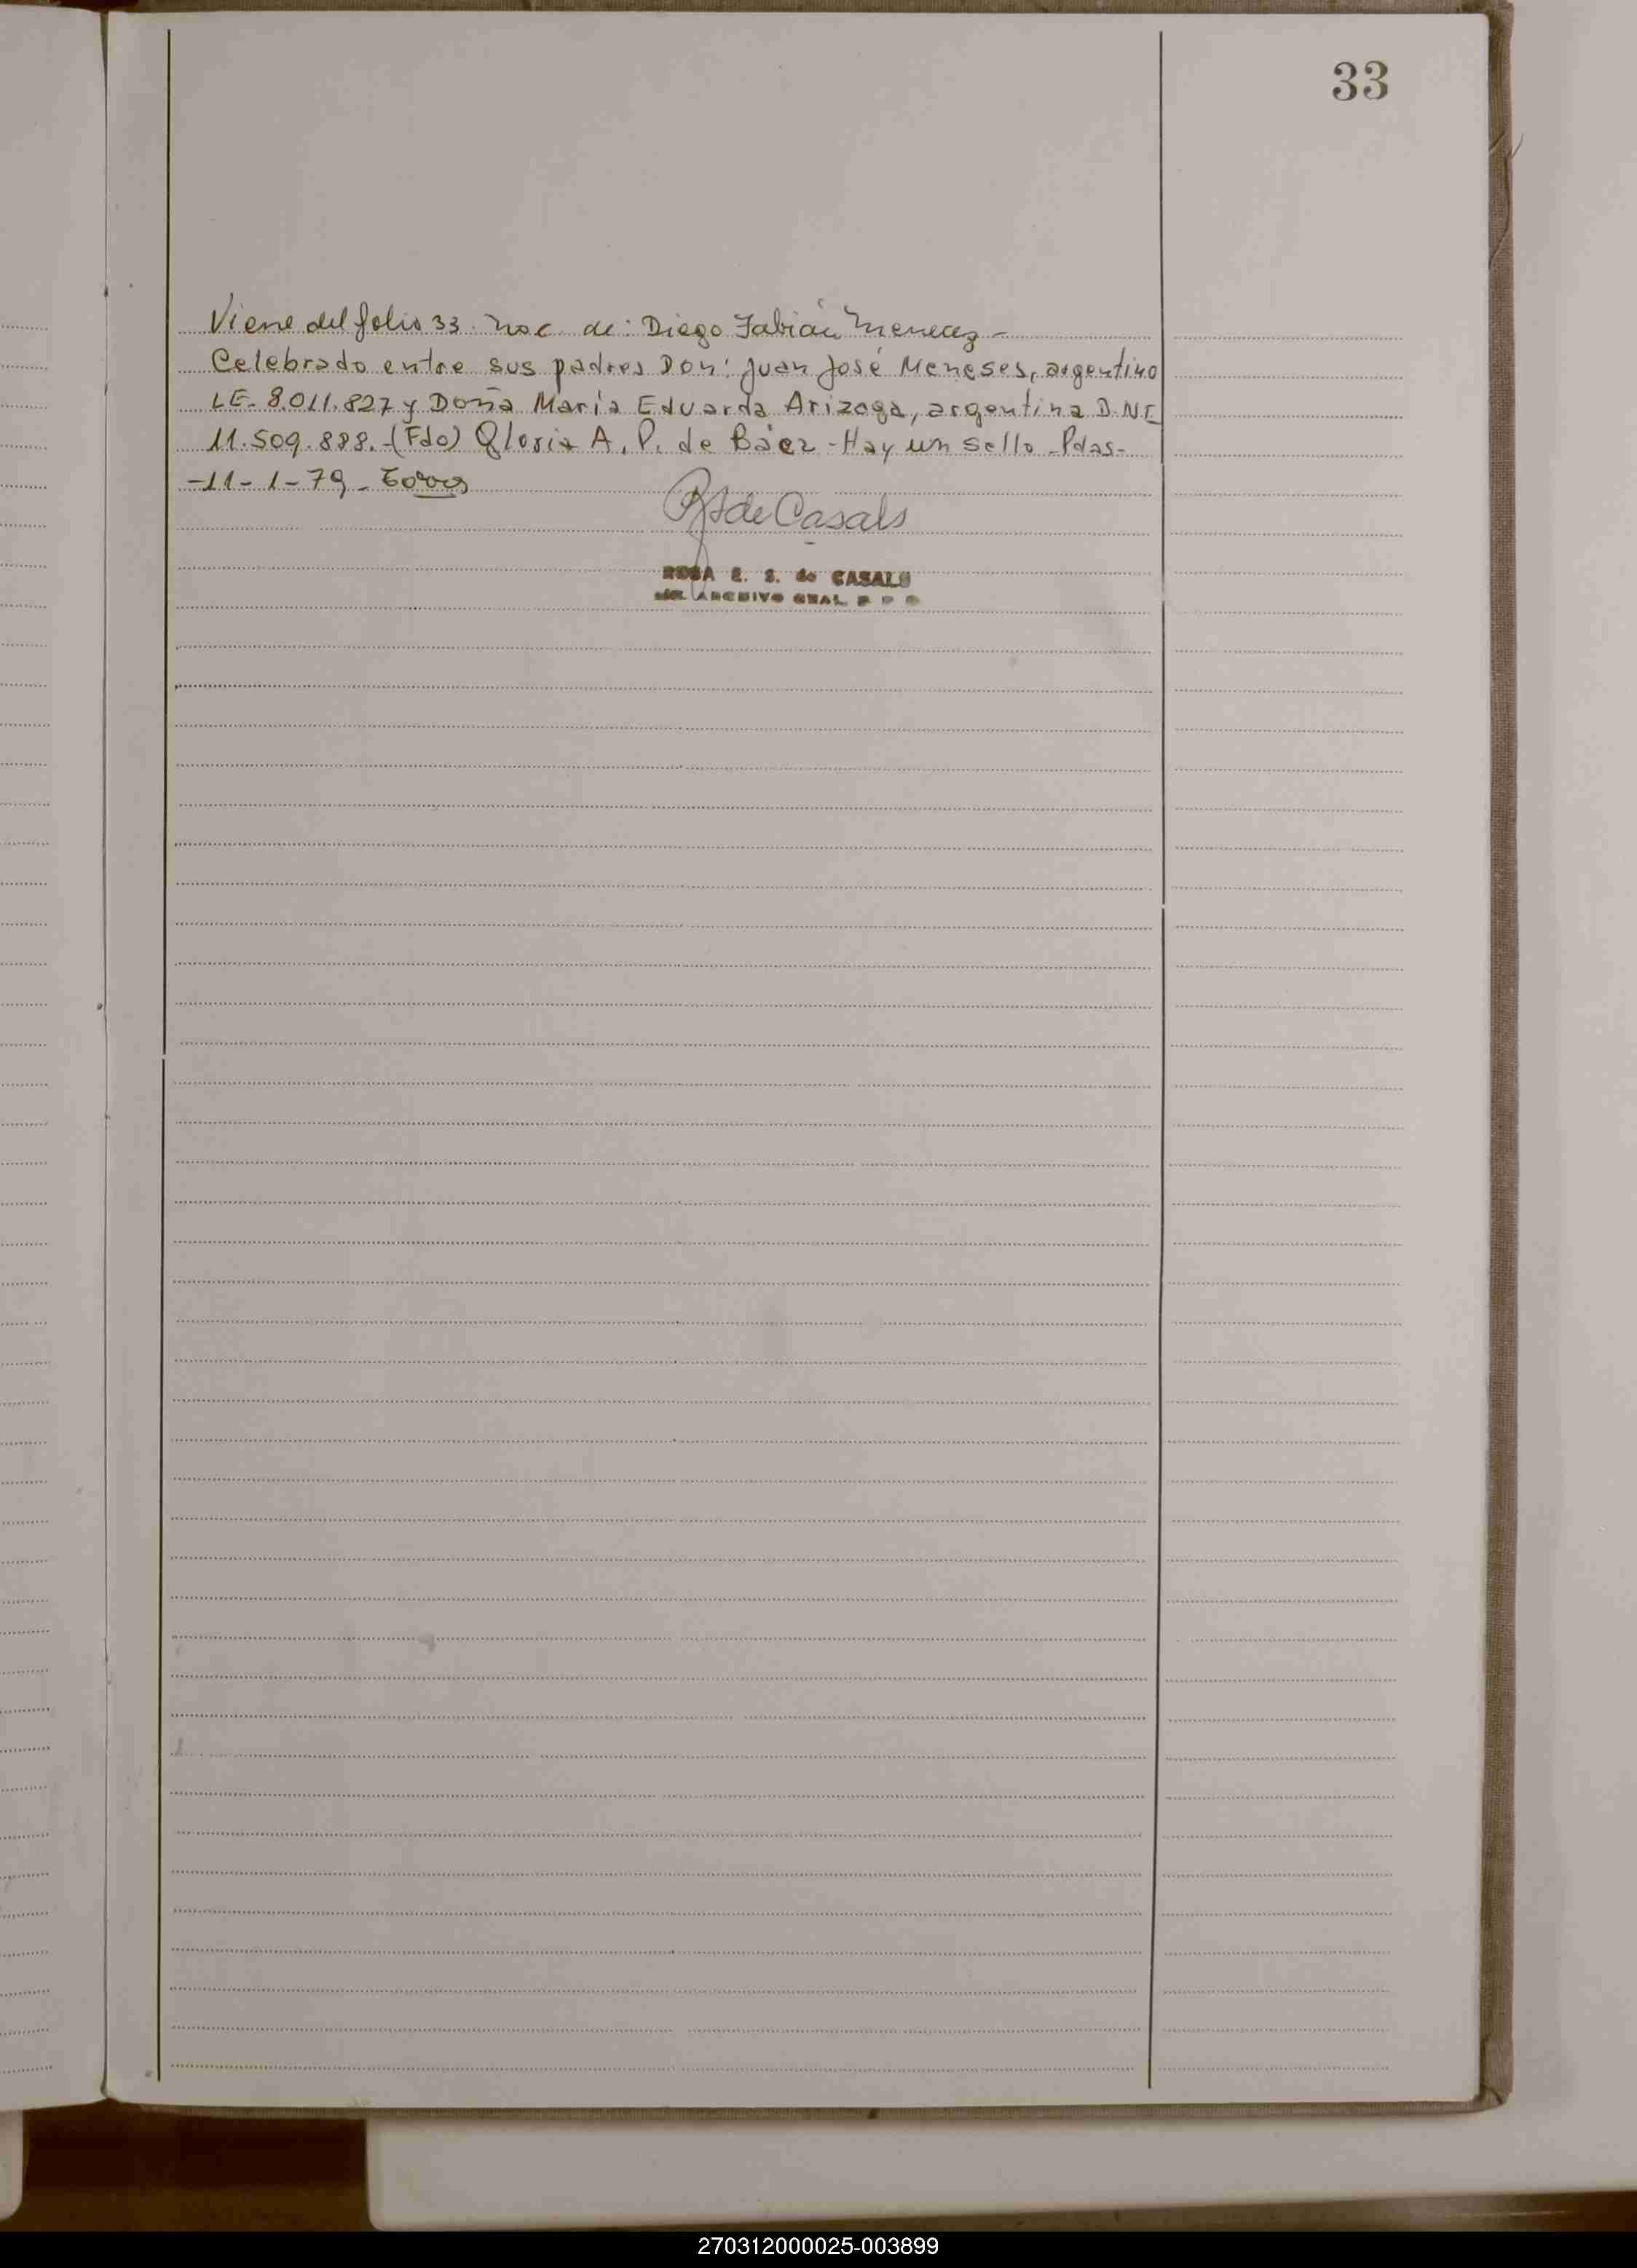 33
Viene del folio 33. nac. de: Diego Fabián Menecez -
Celebrado entre sus padres Don: Juan José Meneses, argentino
LE. 8.011.827 y Doña María Eduarda Arizaga, argentina D.N.I
11.509.888.-(Fdo) Gloria A. P. de Báez - Hay un sello - Pdas-
-11-1-79-
de Casals
ROSA E. S. de CASALS
ARCHIVO GRAL.
270312000025-003899